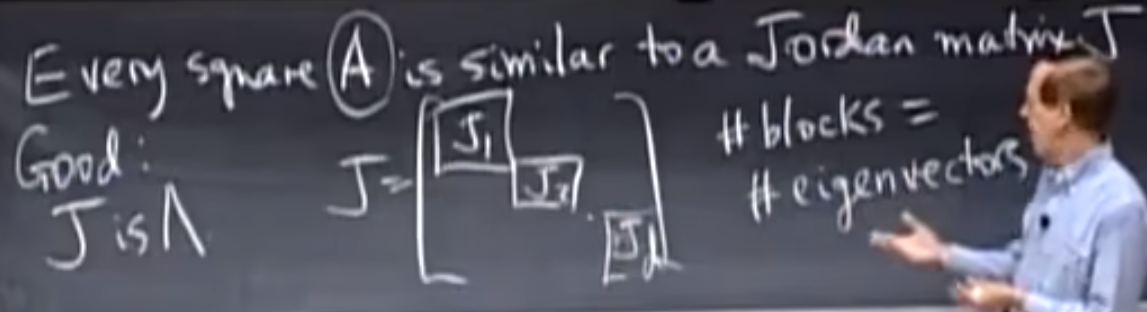 Every square A is similar to a Jordan matrix J
Good:
J is Λ
J = [ J₁ J₂ . J_d ]
# blocks =
# eigenvectors